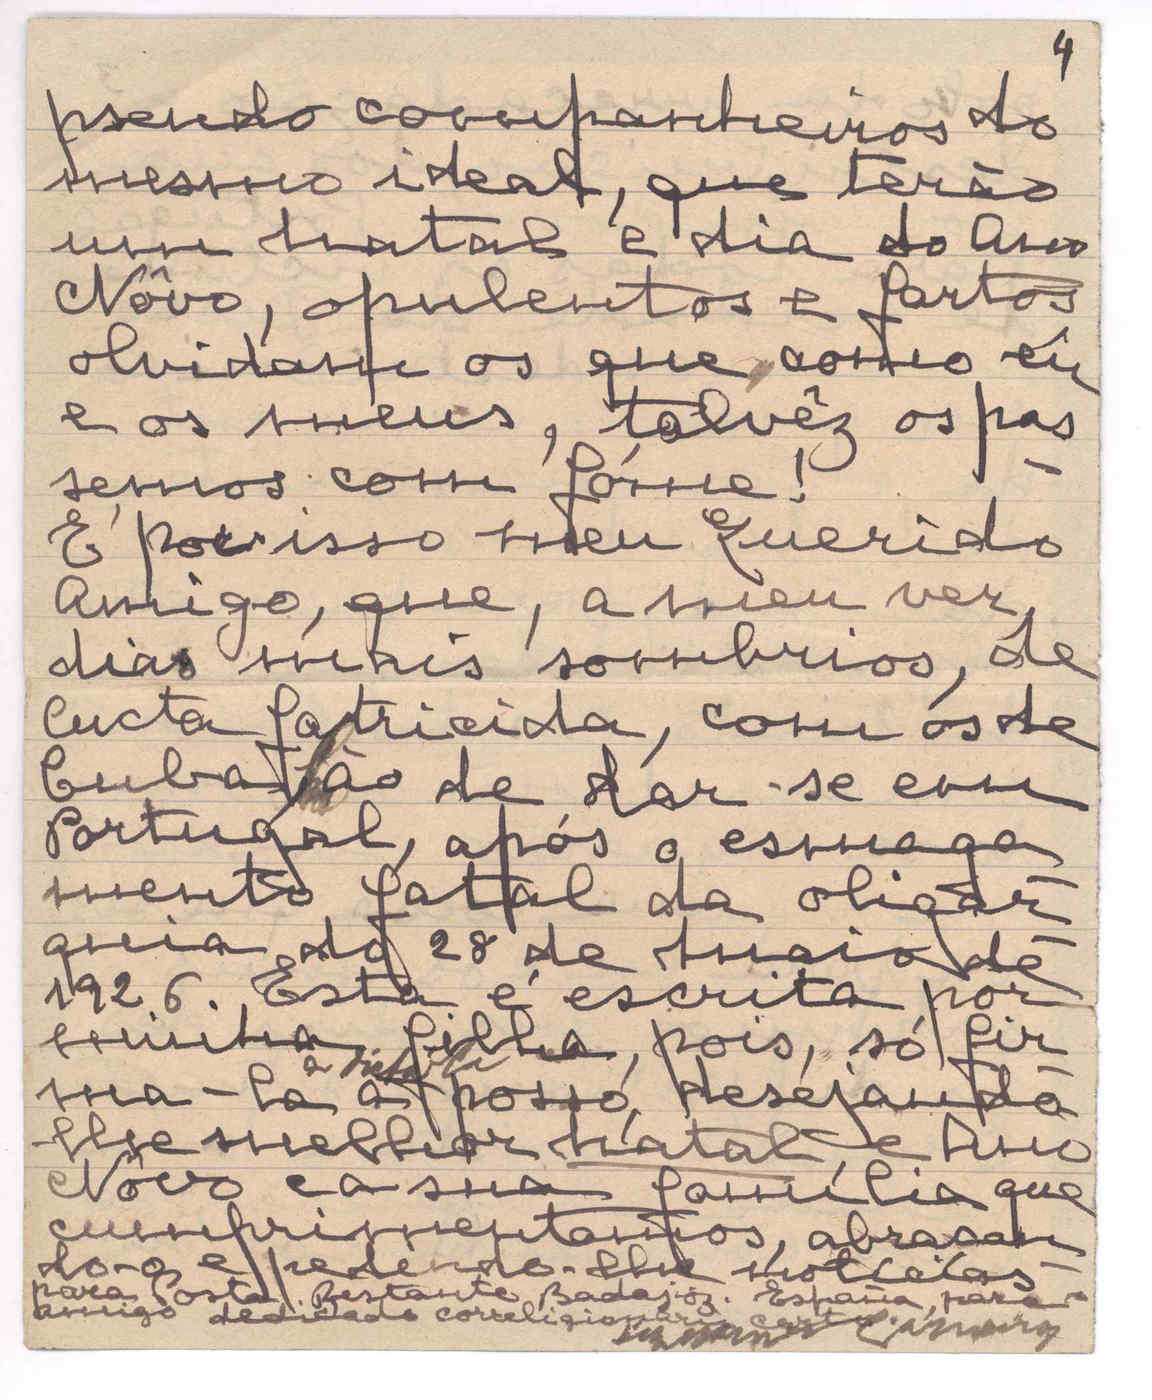 4
pseudo companheiros do
mesmo ideal, que terão
um natal e dia do Ano
Nôvo, opulentos e fartos
olvidam os que como eu
e os meus, talvêz os pas
semos com fóme!
É por isso meu Querido
Amigo, que, a meu ver,
dias mais sombrios, de
lucta fatricida, com ós de
Cuba hão de dar-se em
Portugal, após o esmaga
mento fatal da oligar-
quia do 28 de maio de
1926. Esta é escrita por
minha filha, pois, só fir
ma-la a posso, desejando
-lhe melhor natal e Ano
Nôvo e a sua família que
cumprimentamos, abraçan
do-o e pedendo-lhe notícias
para Posta Restante Badajoz. España, para o
amigo dedicado correligionario certo.